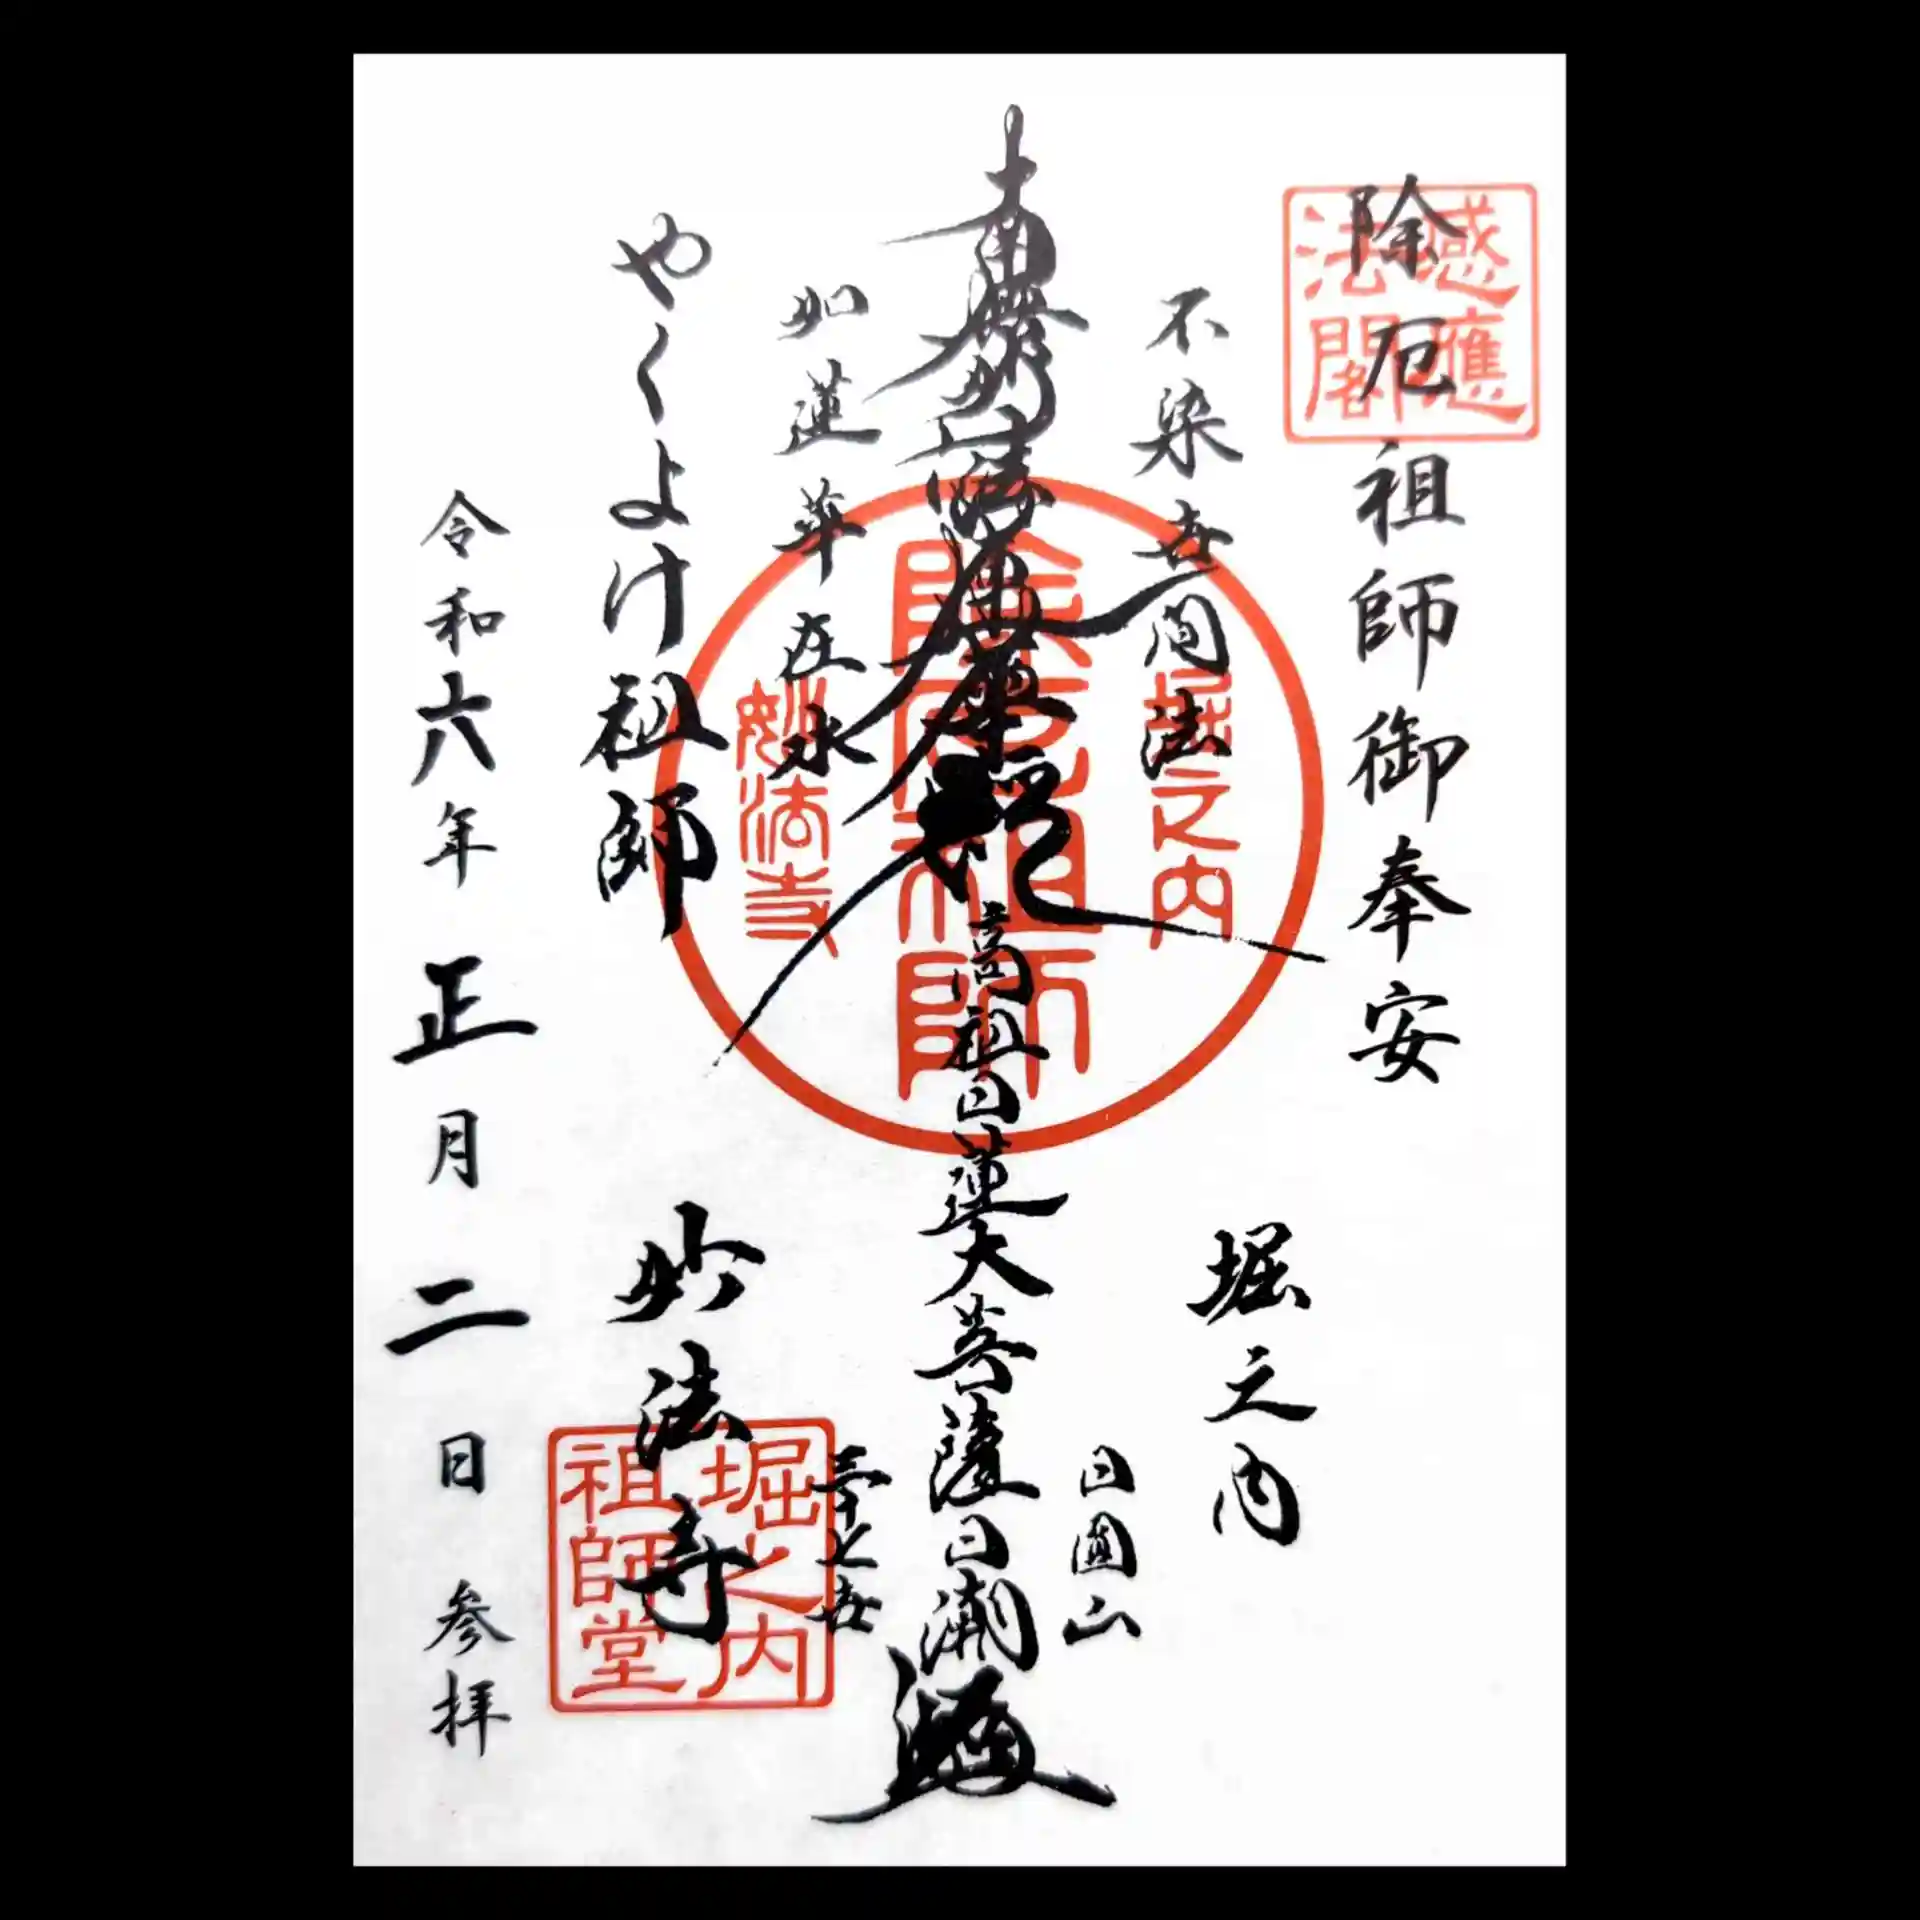 除厄祖師御奉安
感應
法閣
堀之内
不染世間法
堀之内
日圓山
南無妙法蓮華経
高祖日蓮大菩薩
日潮
除厄祖師
如蓮華在水
妙法寺
三十七世
やくよけ祖師
妙法寺
堀之内
祖師堂
令和六年正月二日参拝